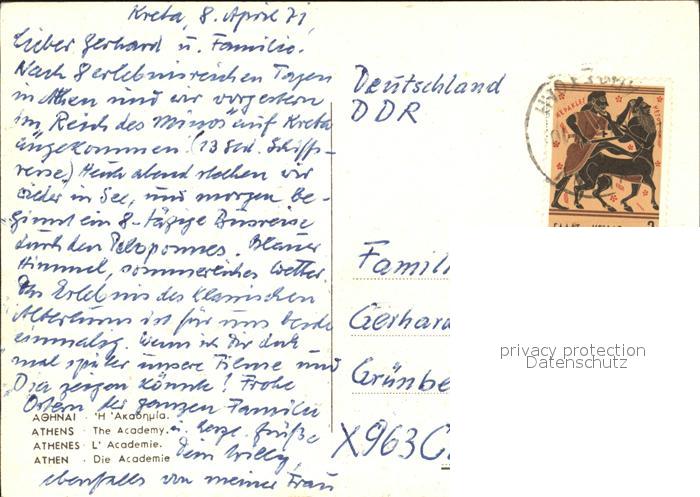 Kreta, 8. April 71,
Lieber Gerhard u. Familie.
Nach 8 erlebnisreichen Tagen
in Athen sind wir vorgestern
im Reich des Minos auf Kreta
angekommen. (13 Std. Schiffs-
reise.) Heute abend stechen wir
wieder in See, und morgen be-
ginnt ein 8-tägige Busreise
durch den Peloponnes. Blauer
Himmel, sommerliches Wetter.
Das Erlebnis des klassischen
Altertums ist für uns beide
einmalig. Wenn ich Dir doch
mal später unsere Filme und
Dia zeigen könnte! Frohe
Ostern der ganzen Familie
u. herzl. Grüße
Dein Willy,
ebenfalls von meiner Frau
ΑΘΗΝΑΙ · Ἡ Ἀκαδημία.
ATHENS · The Academy.
ATHENES · L' Academie.
ATHEN · Die Academie
Deutschland
DDR
ΗΡΑΚΛΕΣ
Famili
Gerhard
Grünbe
X963C
privacy protection
Datenschutz